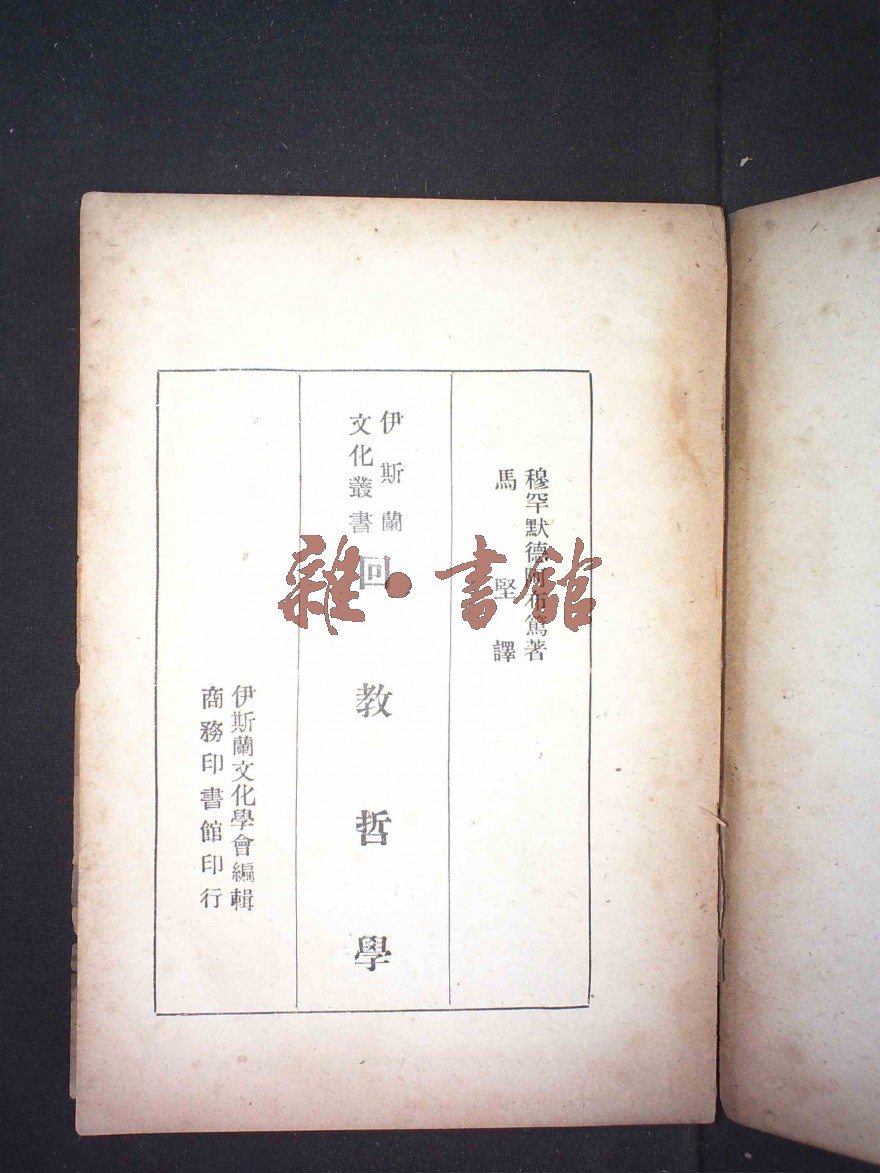 穆罕默德阿布篤著
馬堅譯
伊斯蘭
文化叢書
回教哲學
伊斯蘭文化學會編輯
商務印書館印行
雜·書館